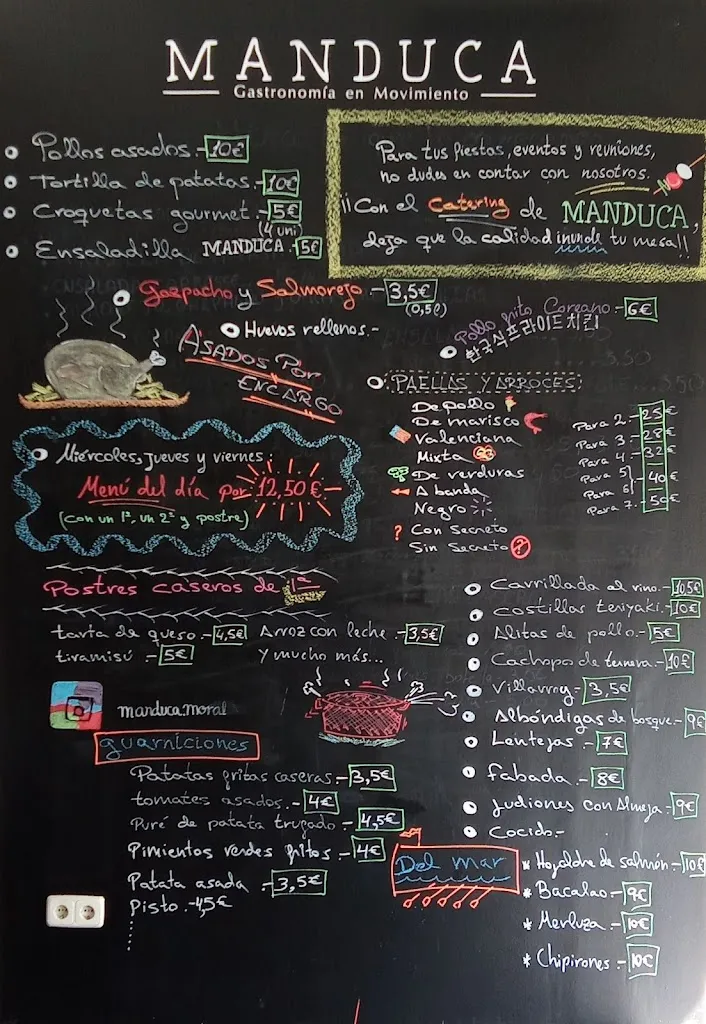 MANDUCA
Gastronomía en Movimiento
Pollos asados.- 10€
Tortilla de patatas.- 10€
Croquetas gourmet.- 5€
(4 uni)
Ensaladilla MANDUCA.- 5€
Para tus fiestas, eventos y reuniones,
no dudes en contar con nosotros.
¡¡Con el Catering de MANDUCA,
deja que la calidad inunde tu mesa!!
Gazpacho y Salmorejo - 3,5€
(0,5l)
Huevos rellenos.-
Pollo frito Coreano.- 6€
한국식프라이드치킨
ASADOS POR
ENCARGO
PAELLAS Y ARROCES
De pollo
De marisco
Valenciana
Mixta
De verduras
A banda
Negro
? Con Secreto
Sin Secreto ?
Para 2.- 25€
Para 3.- 28€
Para 4.- 32€
Para 5
Para 6 40€
Para 7.- 50€
Miércoles, jueves y viernes:
Menú del día por 12,50€
(con un 1º, un 2º y postre)
Postres caseros de 1ª
tarta de queso.- 4,5€ Arroz con leche.- 3,5€
tiramisú.- 5€ Y mucho más...
manduca.moral
guarniciones
Patatas fritas caseras.- 3,5€
tomates asados.- 4€
Puré de patata trufado.- 4,5€
Pimientos verdes fritos.- 4€
Patata asada.- 3,5€
Pisto.- 4,5€
Carrillada al vino.- 10,5€
Costillas teriyaki.- 10€
Alitas de pollo.- 5€
Cachopo de ternera.- 10€
Villaroy.- 3,5€
Albóndigas de bosque.- 9€
Lentejas.- 7€
Fabada.- 8€
Judiones con Almeja.- 9€
Cocido.-
Del Mar
* Hojaldre de salmón.- 10€
* Bacalao.- 9€
* Merluza.- 10€
* Chipirones.- 10€